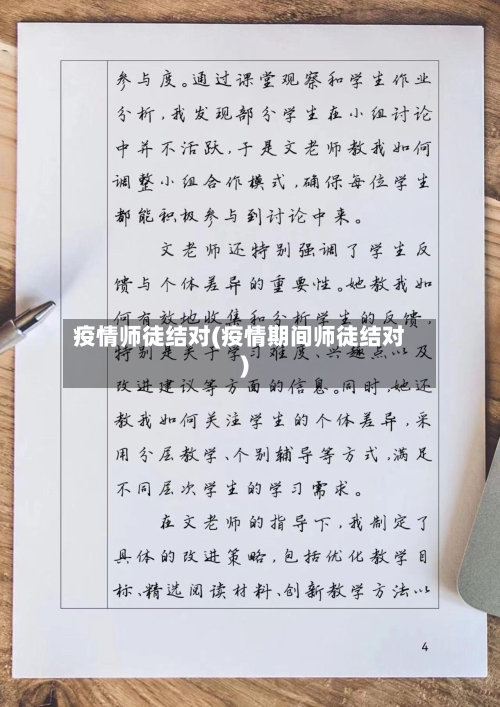 参与度。通过课堂观察和学生作业
分析，我发现部分学生在小组讨论
中并不活跃，于是文老师教我如何
调整小组合作模式，确保每位学生
都能积极参与到讨论中来。
文老师还特别强调了学生反
馈与个体差异的重要性。她教我如
何有效地收集和分析学生的反馈，
疫情师徒结对(疫情期间师徒结对
)
特别是关于学习难度、兴趣点以及
改进建议等方面的信息。同时，她还
教我如何关注学生的个体差异，采
用分层教学、个别辅导等方式，满足
不同层次学生的学习需求。
在文老师的指导下，我制定了
具体的改进策略，包括优化教学目
标、精选阅读材料、创新教学方法以
4